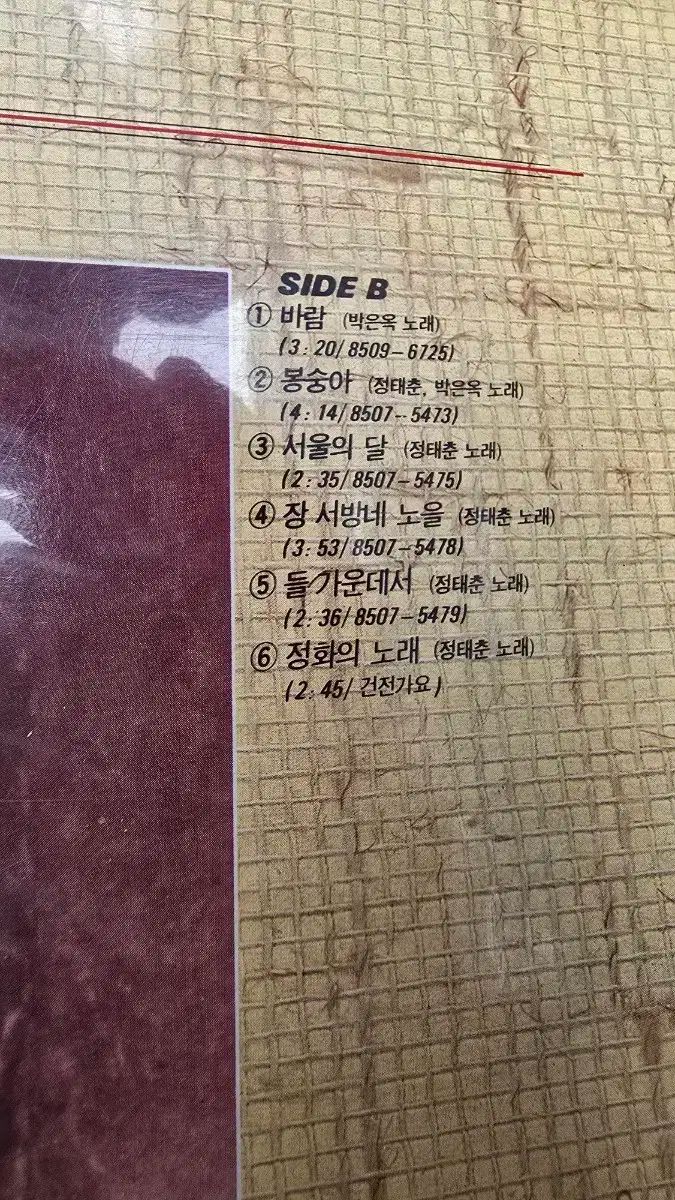 SIDE B
① 바람 (박은옥 노래)
(3:20/8509-6725)
② 봉숭아 (정태춘, 박은옥 노래)
(4:14/8507-5473)
③ 서울의 달 (정태춘 노래)
(2:35/8507-5475)
④ 장 서방네 노을 (정태춘 노래)
(3:53/8507-5478)
⑤ 들 가운데서 (정태춘 노래)
(2:36/8507-5479)
⑥ 정화의 노래 (정태춘 노래)
(2:45/건전가요)